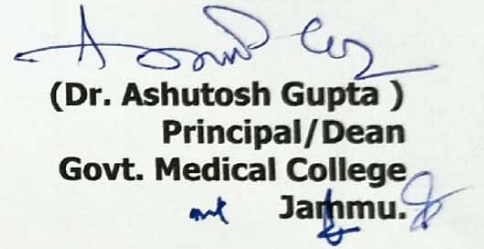 (Dr. Ashutosh Gupta )
Principal/Dean
Govt. Medical College
Jammu.